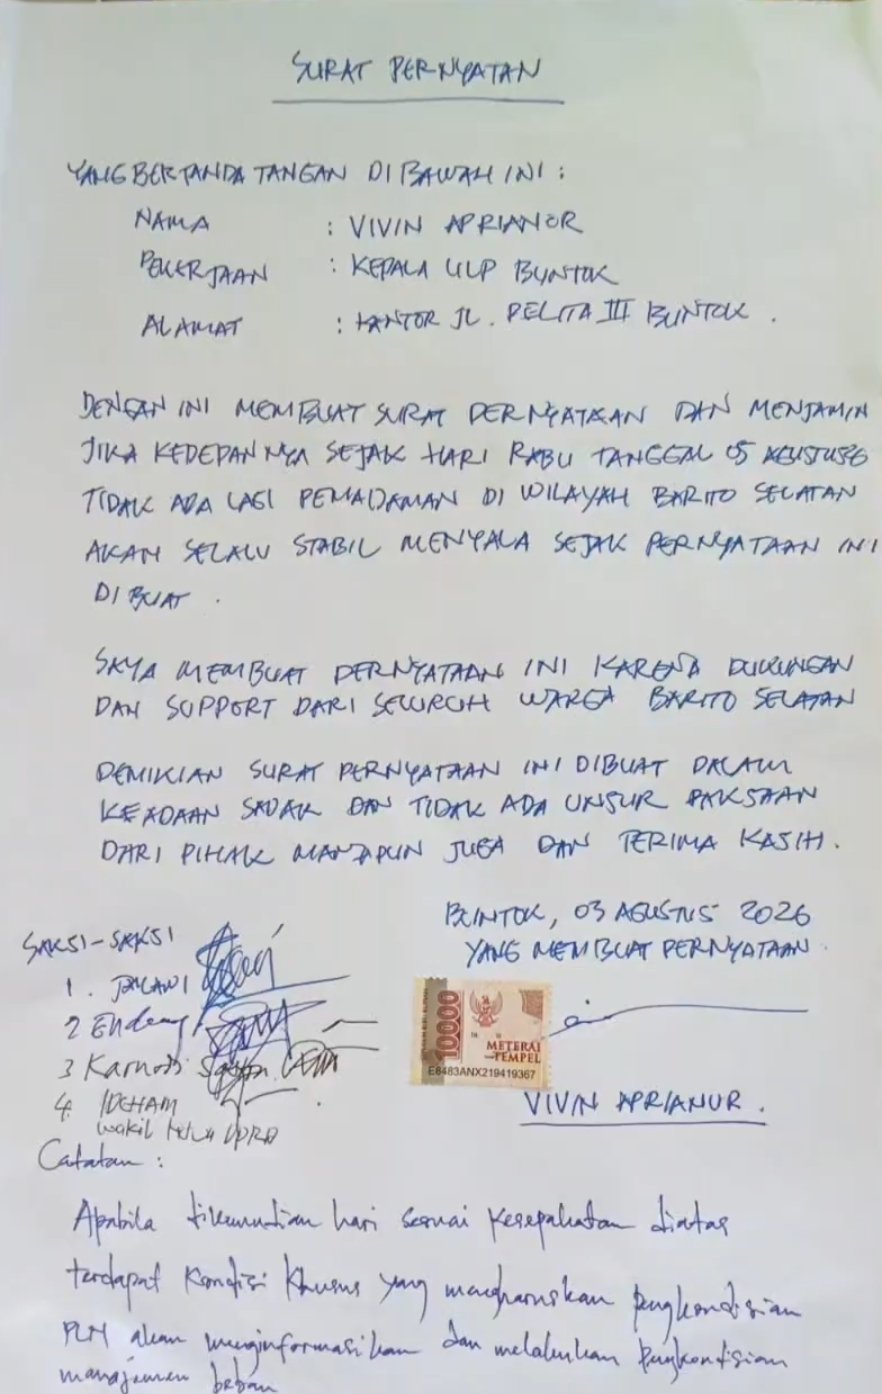 SURAT PERNYATAN
YANG BERTANDA TANGAN DI BAWAH INI :
NAMA : VIVIN APRIANOR
PEKERJAAN : KEPALA ULP BUNTOK
ALAMAT : KANTOR JL. PELITA III BUNTOK .
DENGAN INI MEMBUAT SURAT PERNYATAAN DAN MENJAMIN
JIKA KEDEPANNYA SEJAK HARI RABU TANGGAL 05 AGUSTUS
TIDAK ADA LAGI PEMADAMAN DI WILAYAH BARITO SELATAN
AKAN SELALU STABIL MENYALA SEJAK PERNYATAAN INI
DI BUAT .
SAYA MEMBUAT PERNYATAAN INI KARENA DUKUNGAN
DAN SUPPORT DARI SELURUH WARGA BARITO SELATAN
DEMIKIAN SURAT PERNYATAAN INI DIBUAT DALAM
KEADAAN SADAR DAN TIDAK ADA UNSUR PAKSAAN
DARI PIHAK MANAPUN JUGA DAN TERIMA KASIH.
BUNTOK, 03 AGUSTUS 2026
YANG MEMBUAT PERNYATAAN.
SAKSI-SAKSI
1. JALAWI
2 Endang
3 Karnodi
4. IDEHAM
wakil ketua DPRD
10000
METERAI
TEMPEL
E8483ANX219419367
VIVIN APRIANUR.
Catatan :
Apabila dikemudian hari sesuai kesepakatan diatas
terdapat kondisi khusus yang mengharuskan pengkondisian
PLN akan menginformasikan dan melakukan pengkondisian
manajemen beban